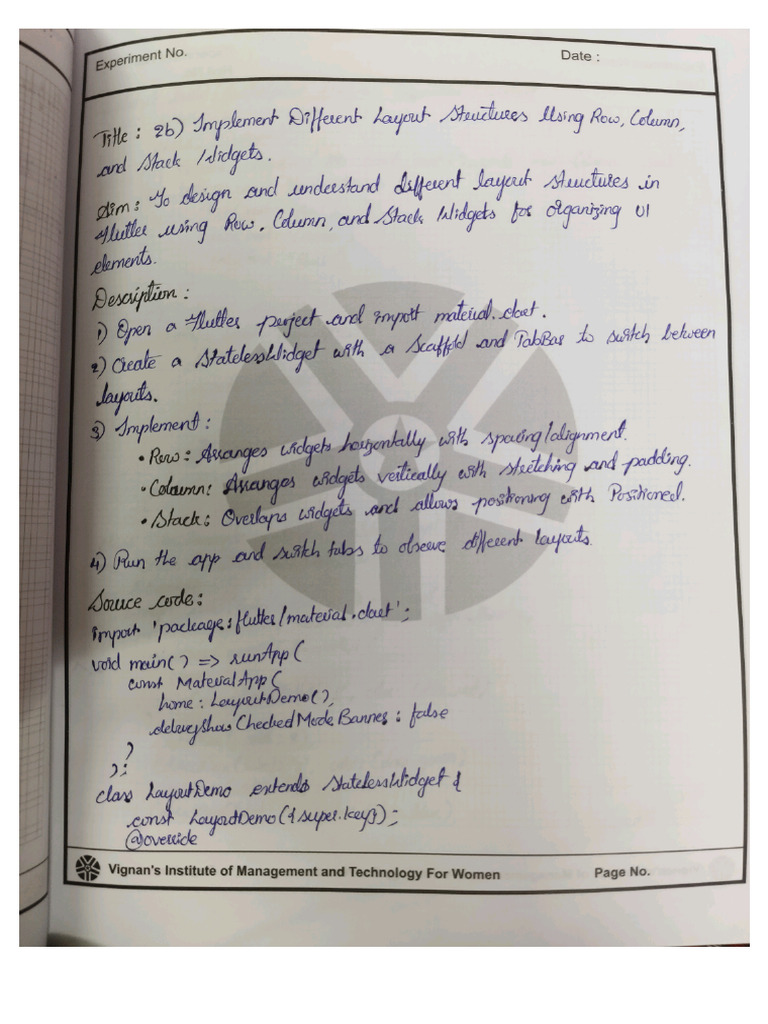 Experiment No.
Date :
Title : 2b) Implement Different Layout Structures Using Row, Column,
and Stack Widgets.
Aim: To design and understand different layout structures in
Flutter using Row, Column, and Stack Widgets for organizing UI
elements.
Description :
1) Open a Flutter project and import material.dart.
2) Create a StatelessWidget with a Scaffold and TabBar to switch between
layouts.
3) Implement :
• Row: Arranges widgets horizontally with spacing/alignment.
• Column: Arranges widgets vertically with stretching and padding.
• Stack: Overlaps widgets and allows positioning with Positioned.
4) Run the app and switch tabs to observe different layouts.
Source code:
import 'package:flutter/material.dart';
void main() => runApp(
const MaterialApp(
home: LayoutDemo(),
debugShowCheckedModeBanner: false
)
);
class LayoutDemo extends StatelessWidget {
const LayoutDemo({super.key});
@override
Vignan's Institute of Management and Technology For Women
Page No.